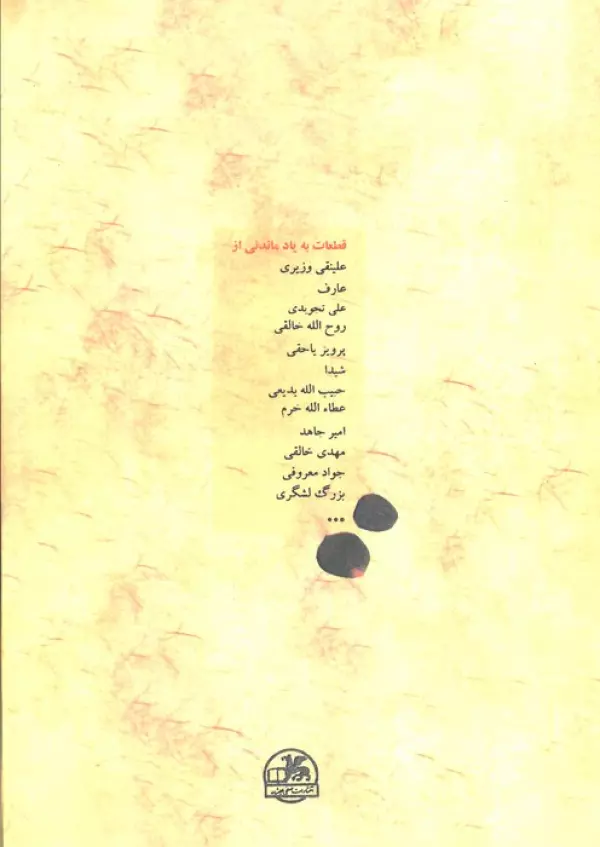 قطعات به یاد ماندنی از
علینقی وزیری
عارف
علی تجویدی
روح الله خالقی
پرویز یاحقی
شیدا
حبیب الله بدیعی
عطاء الله خرم
امیر جاهد
مهدی خالقی
جواد معروفی
بزرگ لشگری
...